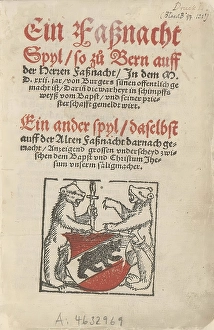 Ein Faßnacht
Spyl/ so zů Bern auff
der Herren Faßnacht/ In dem M.
D. xxii. jar/ von Burgers sünen offentlich ge
macht ist/ Darin die warheyt in schimpffs
weyß vom Bapst/ vnd seiner prie-
sterschafft gemeldt wirt.
Ein ander spyl/ daselbst
auff der Alten Faßnacht darnach ge-
macht/ Anzeigend grossen vnderscheyd zwi-
schen dem Bapst vnd Christum Jhe-
sum vnserm säligmacher.
A: 4632969